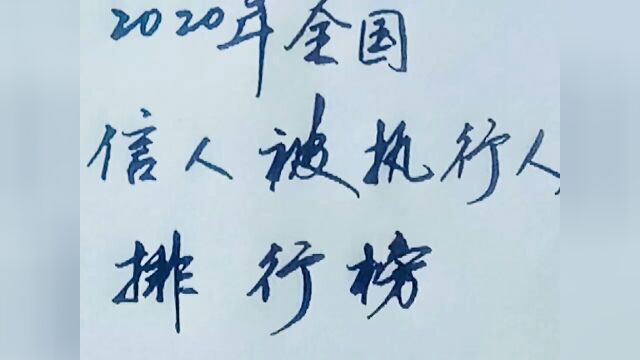 2020年全国
信人被执行人
排行榜